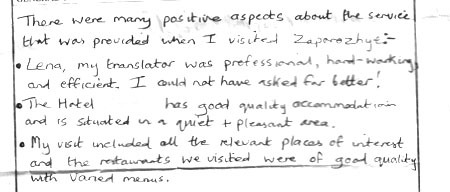 There were many positive aspects about the service
that was provided when I visited Zaporozhye:-
• Lena, my translator was professional, hard-working,
and efficient. I could not have asked for better!
• The Hotel has good quality accommodation
and is situated in a quiet + pleasant area.
• My visit included all the relevant places of interest
and the restaurants we visited were of good quality
with varied menus.